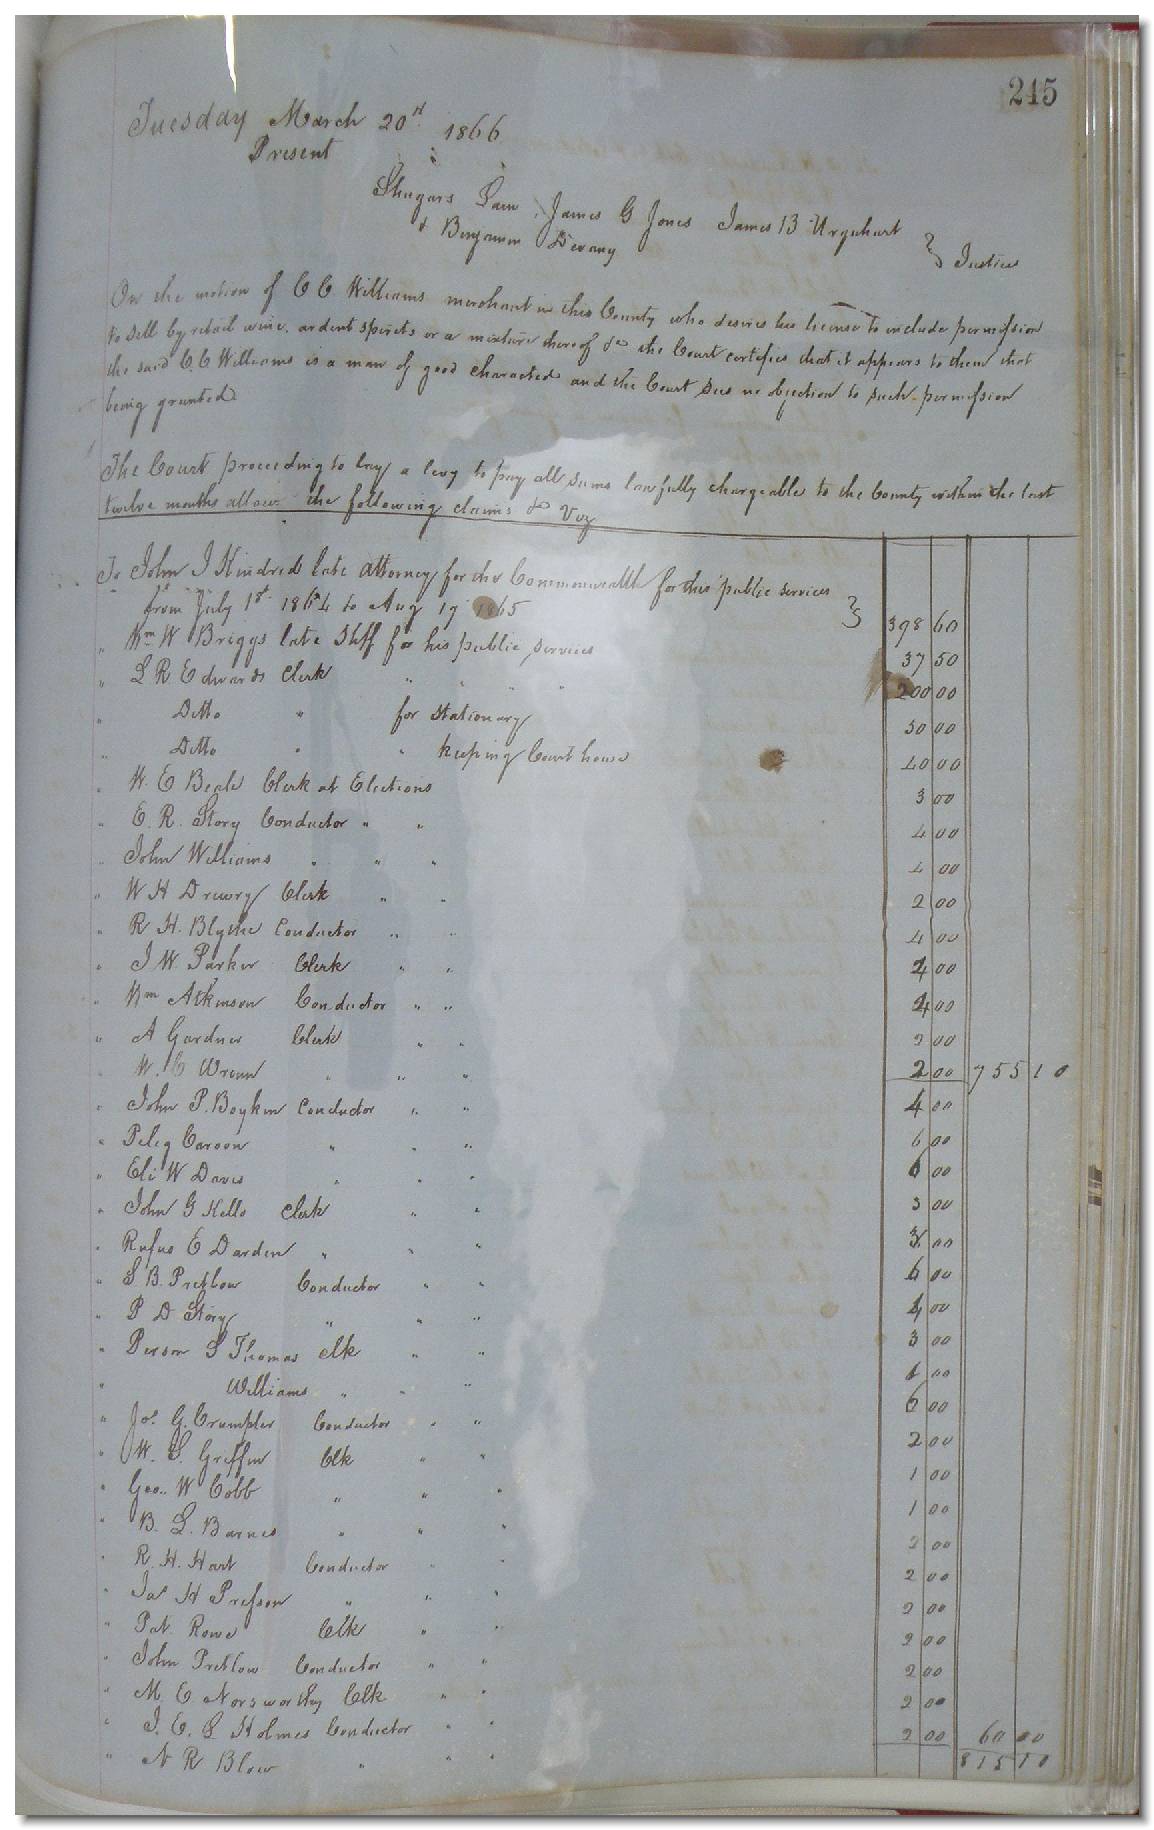 245
Tuesday March 20th 1866
Present
Shugars Lain, James G Jones James B Urquhart
& Benjamin Devany } Justices
On the motion of C C Williams merchant in this County who desires his license to include permission
to sell by retail wine, ardent spirits or a mixture thereof &c the Court certifies that it appears to them that
the said C. C Williams is a man of good character and the Court sees no objection to such permission
being granted
The Court proceeding to lay a levy to pay all sums lawfully chargeable to the County within the last
twelve months allow the following claims &c Viz
To John J Kindred late attorney for the Commonwealth for his public services
from July 1st 1864 to Aug 19 1865 } 398 60
" Wm W Briggs late Shff for his public services 37 50
" L R Edwards Clerk " " " " 200 00
" Ditto " for Stationary 50 00
" Ditto " " keeping Court house 40 00
" W. E Beale Clerk at Elections 3 00
" E. R. Story Conductor " " 4 00
" John Williams " " " 4 00
" W H Drewry Clerk " " 2 00
" R H. Blythe Conductor " " 4 00
" J W Parker Clerk " " 4 00
" Wm Atkinson Conductor " " 4 00
" A Gardner Clerk " " 2 00
" W. C Wrenn " " " 2 00 755 10
" John P. Boykin Conductor " " 4 00
" Peleg Carson " " " 6 00
" Eli W Davis " " " 6 00
" John G Kello Clerk " " 3 00
" Rufus E Darden " " " 3 00
" S B. Pretlow Conductor " " 6 00
" P D Story " " " 4 00
" Person S Thomas Clk " " 3 00
" Williams " " " 00
" Jos. G. Crumpler Conductor " " 6 00
" W. S. Griffin Clk " " 2 00
" Geo. W Cobb " " " 1 00
" B. L. Barnes " " " 1 00
" R. H. Hart Conductor " " 2 00
" Jas H Presson " " " 2 00
" Pat. Rowe Clk " " 2 00
" John Pretlow Conductor " " 2 00
" M. E Norsworthy Clk " " 2 00
" J. E. S. Holmes Conductor " " 2 00
" N R Blow " " 2 00 60 00
815 10